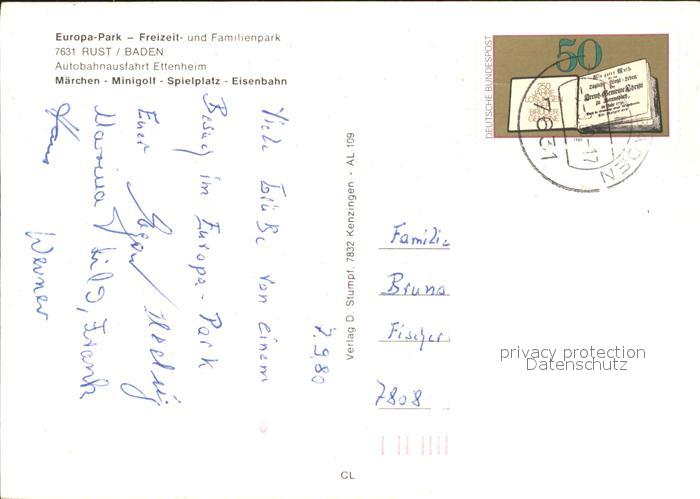 Europa-Park – Freizeit- und Familienpark
7631 RUST / BADEN
Autobahnausfahrt Ettenheim
Märchen - Minigolf - Spielplatz - Eisenbahn
7.9.80
Viele Grüße von einem
Besuch im Europa-Park
Euer
Marina, Frank
Hans
Werner
Verlag D. Stumpf, 7832 Kenzingen - AL 109
CL
DEUTSCHE BUNDESPOST
50
250
7631
-17
Familie
Bruno
Fischer
7808
privacy protection
Datenschutz